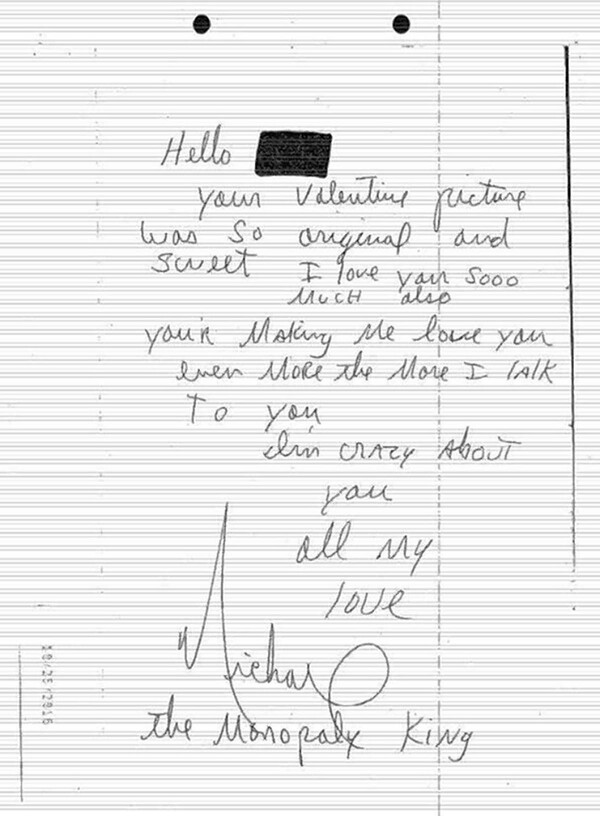 Hello
your Valentine picture
was so original and
sweet I love you sooo
MUCH also
your Making Me love you
even MoRe the More I TAlK
To you
Im CRAZY About
you
all My
love
Michael
the Monopoly King
10/25/2016